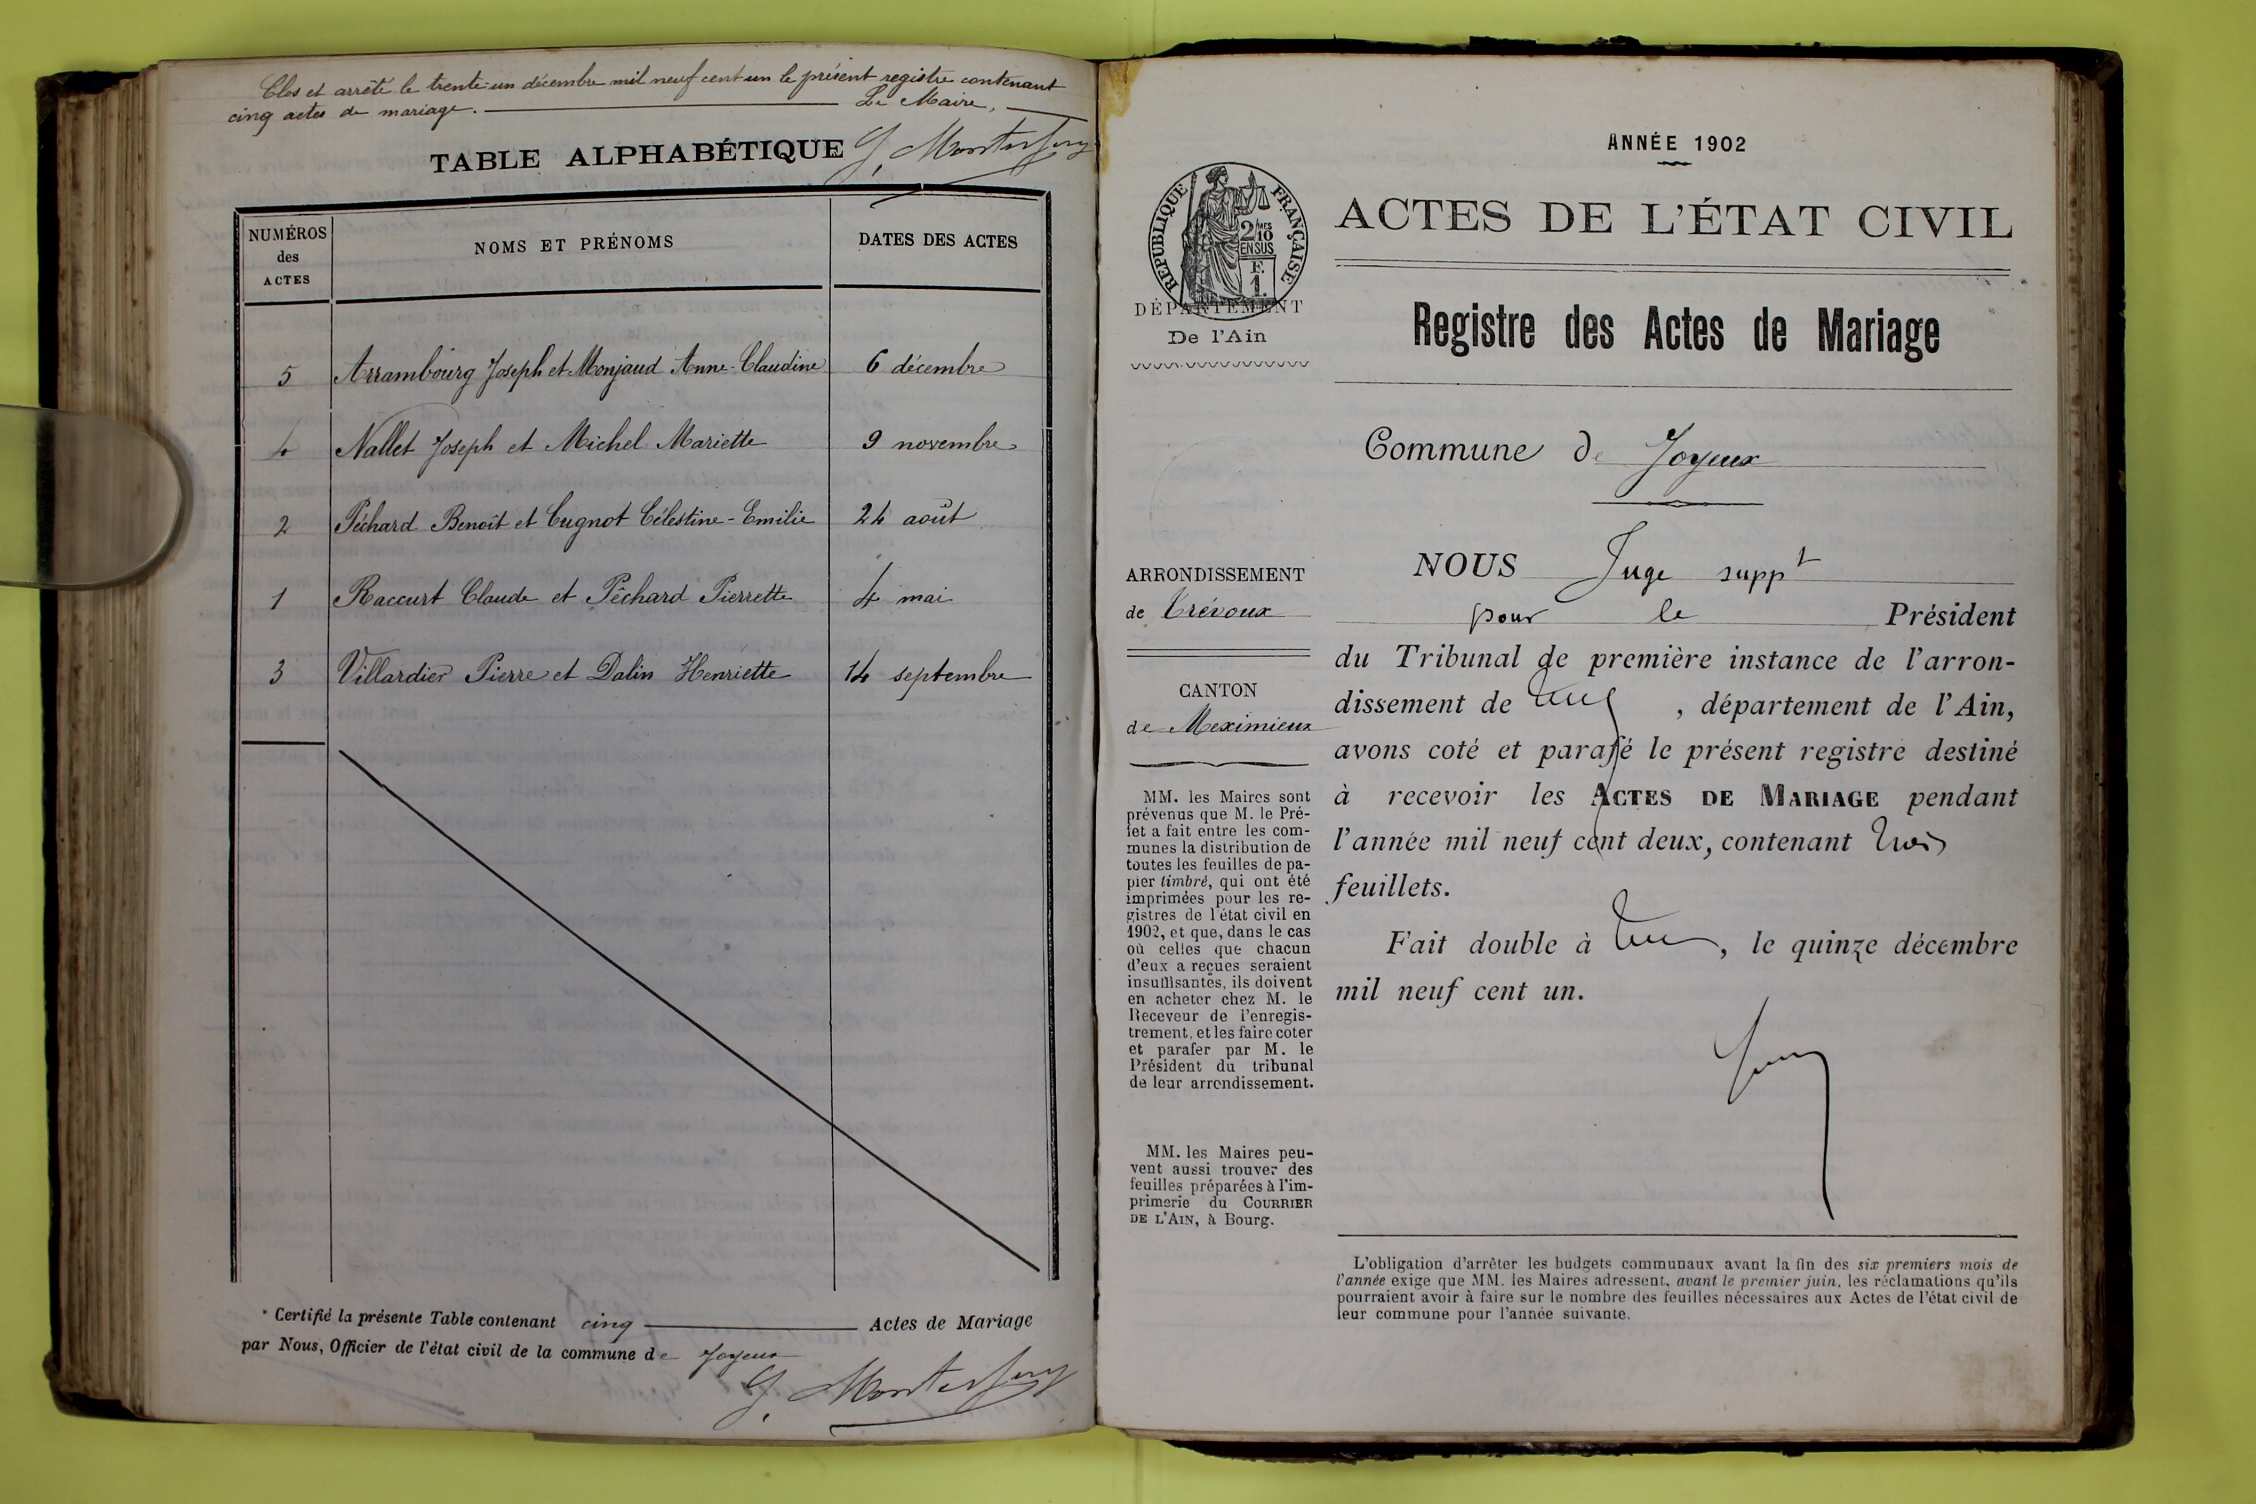 Clos et arrêté le trente-un décembre mil neuf cent un le présent registre contenant
cinq actes de mariage. Le Maire,
TABLE ALPHABÉTIQUE
NUMÉROS
des
ACTES
NOMS ET PRÉNOMS
DATES DES ACTES
5 Arrambourg Joseph et Monjaud Anne-Claudine 6 décembre
4 Nallet Joseph et Michel Mariette 9 novembre
2 Péchard Benoît et Cugnot Célestine-Emilie 24 août
1 Raccurt Claude et Péchard Pierrette 4 mai
3 Villardier Pierre et Dalin Henriette 14 septembre
Certifié la présente Table contenant cinq Actes de Mariage
par Nous, Officier de l'état civil de la commune de Joyeux
ANNÉE 1902
RÉPUBLIQUE FRANÇAISE
2 10MES
EN SUS
F.
1.
DÉPARTEMENT
De l'Ain
ACTES DE L'ÉTAT CIVIL
Registre des Actes de Mariage
Commune de Joyeux
ARRONDISSEMENT
de Trévoux
CANTON
de Meximieux
MM. les Maires sont
prévenus que M. le Pré-
fet a fait entre les com-
munes la distribution de
toutes les feuilles de pa-
pier timbré, qui ont été
imprimées pour les re-
gistres de l'état civil en
1902, et que, dans le cas
où celles que chacun
d'eux a reçues seraient
insuffisantes, ils doivent
en acheter chez M. le
Receveur de l'enregis-
trement, et les faire coter
et parafer par M. le
Président du tribunal
de leur arrondissement.
MM. les Maires peu-
vent aussi trouver des
feuilles préparées à l'im-
primerie du COURRIER
DE L'AIN, à Bourg.
NOUS Juge suppt
pour le Président
du Tribunal de première instance de l'arron-
dissement de , département de l'Ain,
avons coté et parafé le présent registre destiné
à recevoir les ACTES DE MARIAGE pendant
l'année mil neuf cent deux, contenant trois
feuillets.
Fait double à , le quinze décembre
mil neuf cent un.
L'obligation d'arrêter les budgets communaux avant la fin des six premiers mois de
l'année exige que MM. les Maires adressent, avant le premier juin, les réclamations qu'ils
pourraient avoir à faire sur le nombre des feuilles nécessaires aux Actes de l'état civil de
leur commune pour l'année suivante.